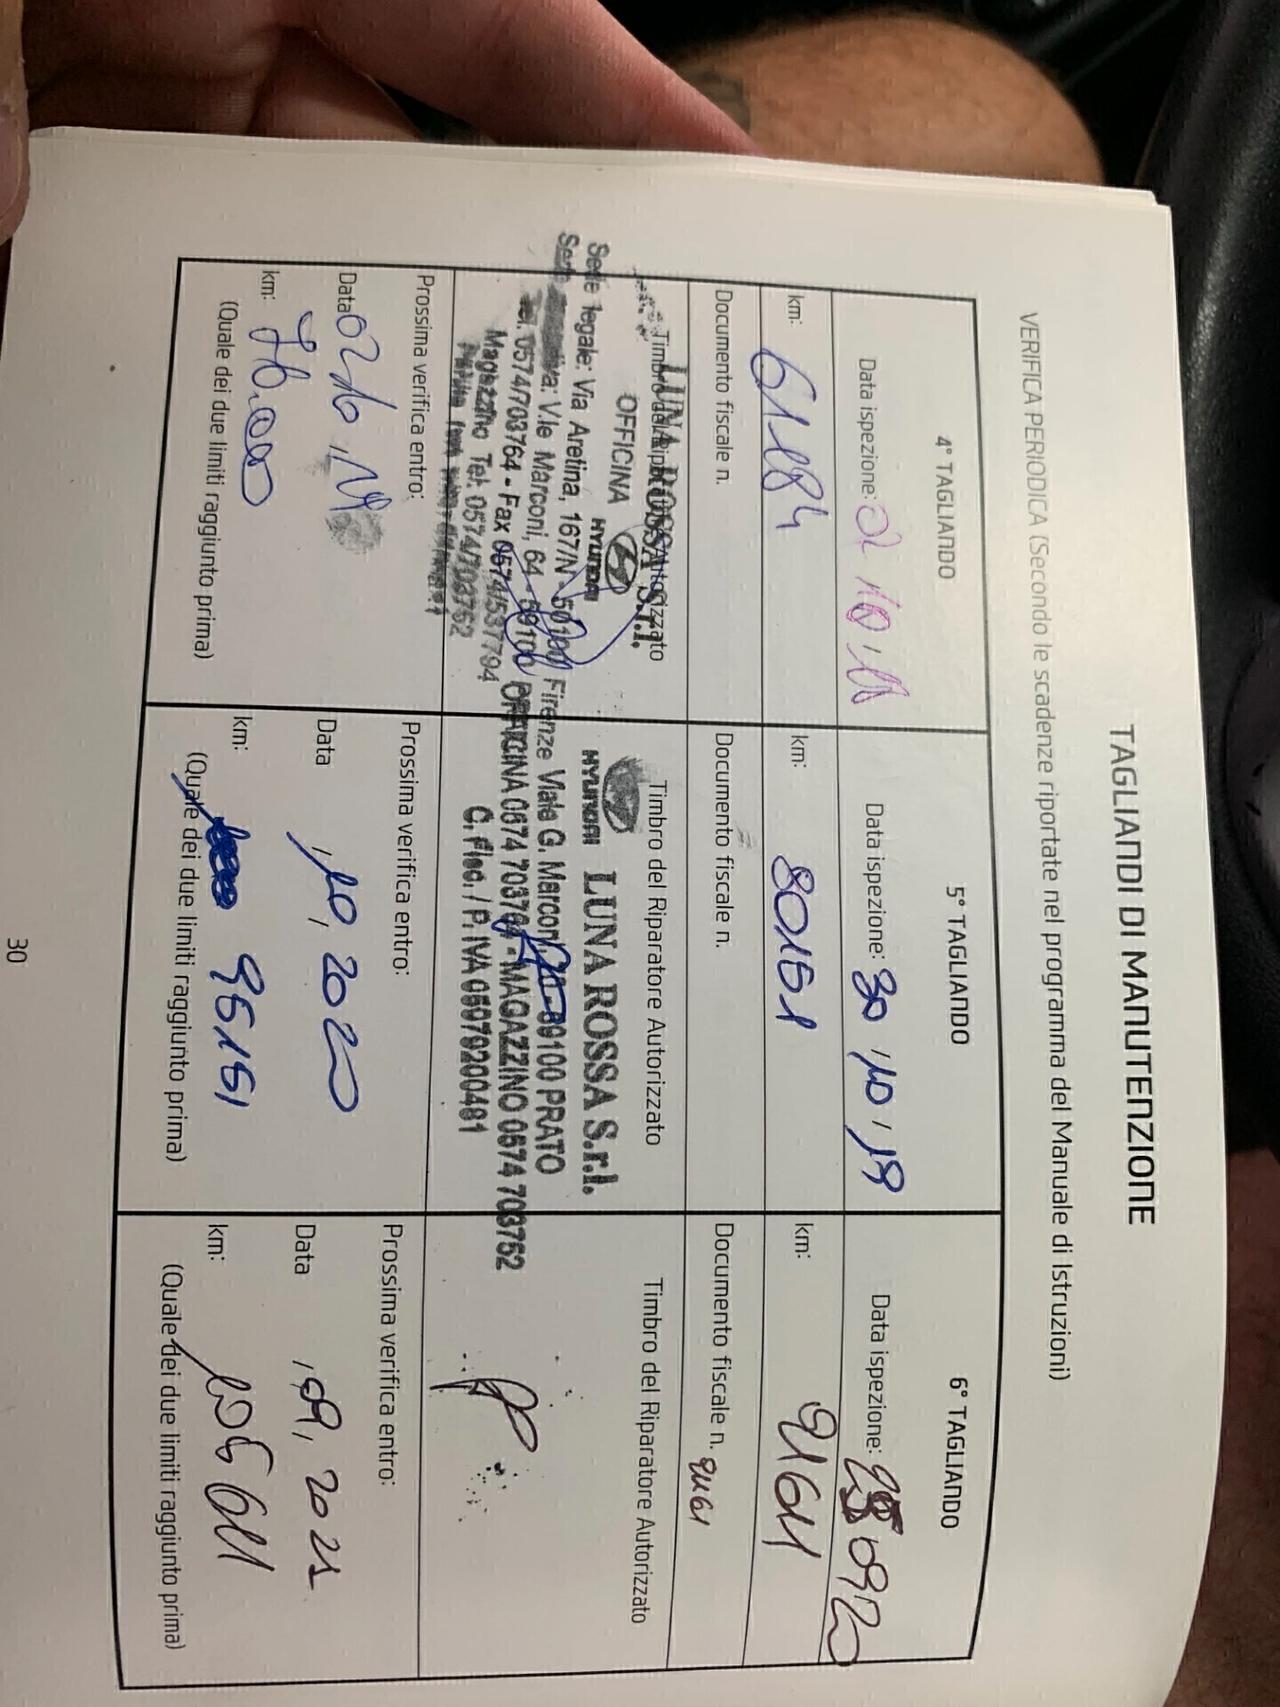 TAGLIANDI DI MANUTENZIONE
VERIFICA PERIODICA (Secondo le scadenze riportate nel programma del Manuale di Istruzioni)
4° TAGLIANDO
Data ispezione: 02 10 18
km: 61184
Documento fiscale n.
Timbro del Riparatore Autorizzato
LUNA ROSSA S.r.l.
OFFICINA HYUNDAI
Sede legale: Via Aretina, 167/N - 50100 Firenze
V.le Marconi, 64 - 59100
Tel. 0574/703764 - Fax 0574/537794
Magazzino Tel. 0574/703752
Prossima verifica entro:
Data 02 10 19
km: 76.000
(Quale dei due limiti raggiunto prima)
5° TAGLIANDO
Data ispezione: 30 10 19
km: 80151
Documento fiscale n.
Timbro del Riparatore Autorizzato
HYUNDAI LUNA ROSSA S.r.l.
Viale G. Marconi, 59100 PRATO
OFFICINA 0574 703764 - MAGAZZINO 0574 703752
C. Fisc. / P. IVA 05979200481
Prossima verifica entro:
Data 10, 2020
km: 95151
(Quale dei due limiti raggiunto prima)
6° TAGLIANDO
Data ispezione: 09 20
km: 91611
Documento fiscale n.
Timbro del Riparatore Autorizzato
Prossima verifica entro:
Data 09, 2021
km: 106611
(Quale dei due limiti raggiunto prima)
30